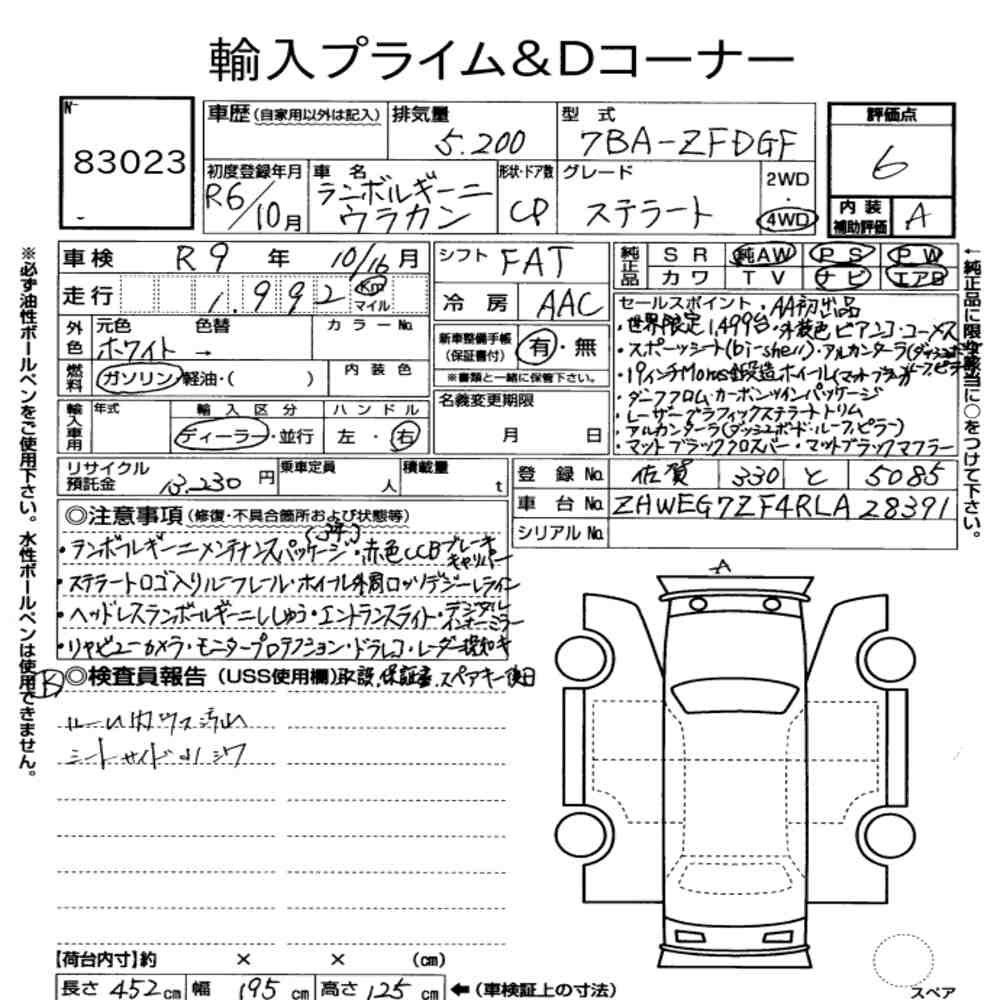 輸入プライム&Dコーナー
No 83023
車歴(自家用以外は記入) 排気量 5.200 型式 7BA-ZFDGF 評価点 6
初度登録年月 R6/10月 車名 ランボルギーニ ウラカン 形状・ドア数 CP グレード ステラート 2WD・4WD 内装補助評価 A
車検 R9年 10/16月 シフト FAT 純正品 SR 純AW PS PW
走行 1.992 Km マイル 冷房 AAC カワ TV ナビ エアB
外色 元色 ホワイト → 色替 カラーNo. 新車整備手帳(保証書付) 有・無
※書類と一緒に保管下さい。
燃料 ガソリン・軽油・( ) 内装色 名義変更期限 月 日
輸入車用 年式 輸入区分 ディーラー・並行 ハンドル 左・右
セールスポイント・AA初出品
・世界限定1,499台・外装色ビアンコ・コーメス
・スポーツシート(bi-shell)・アルカンターラ(ダッシュボード
・19インチMorus鍛造ホイール(マットブラック) ルーフ・ピラー
・ダーククロム・カーボンツインパッケージ
・レーザーグラフィックステラートトリム
・アルカンターラ(ダッシュボード・ルーフ・ピラー)
・マットブラッククロスバー・マットブラックマフラー
リサイクル預託金 13.230円 乗車定員 人 積載量 t 登録No. 佐賀 330 と 5085
車台No. ZHWEG7ZF4RLA28391
シリアルNo.
◎注意事項(修復・不具合箇所および状態等)
・ランボルギーニメンテナンスパッケージ(3年)・赤色CCBブレーキキャリパー
・ステラートロゴ入りルーフレール・ホイール外周ロッソデジーレライン
・ヘッドレスランボルギーニししゅう・エントランスライト・デジタルインナーミラー
・リヤビューカメラ・モニタープロテクション・ドラレコ・レーダー探知キ
◎検査員報告(USS使用欄)取説、保証書、スペアキー後日
ルーム内ウス汚れ
シートサイド小シワ
A
【荷台内寸】約 × × (cm)
長さ 452cm 幅 195cm 高さ 125cm ←(車検証上の寸法)
スペア
※必ず油性ボールペンをご使用下さい。水性ボールペンは使用できません。
←純正品に限り該当に○をつけて下さい。